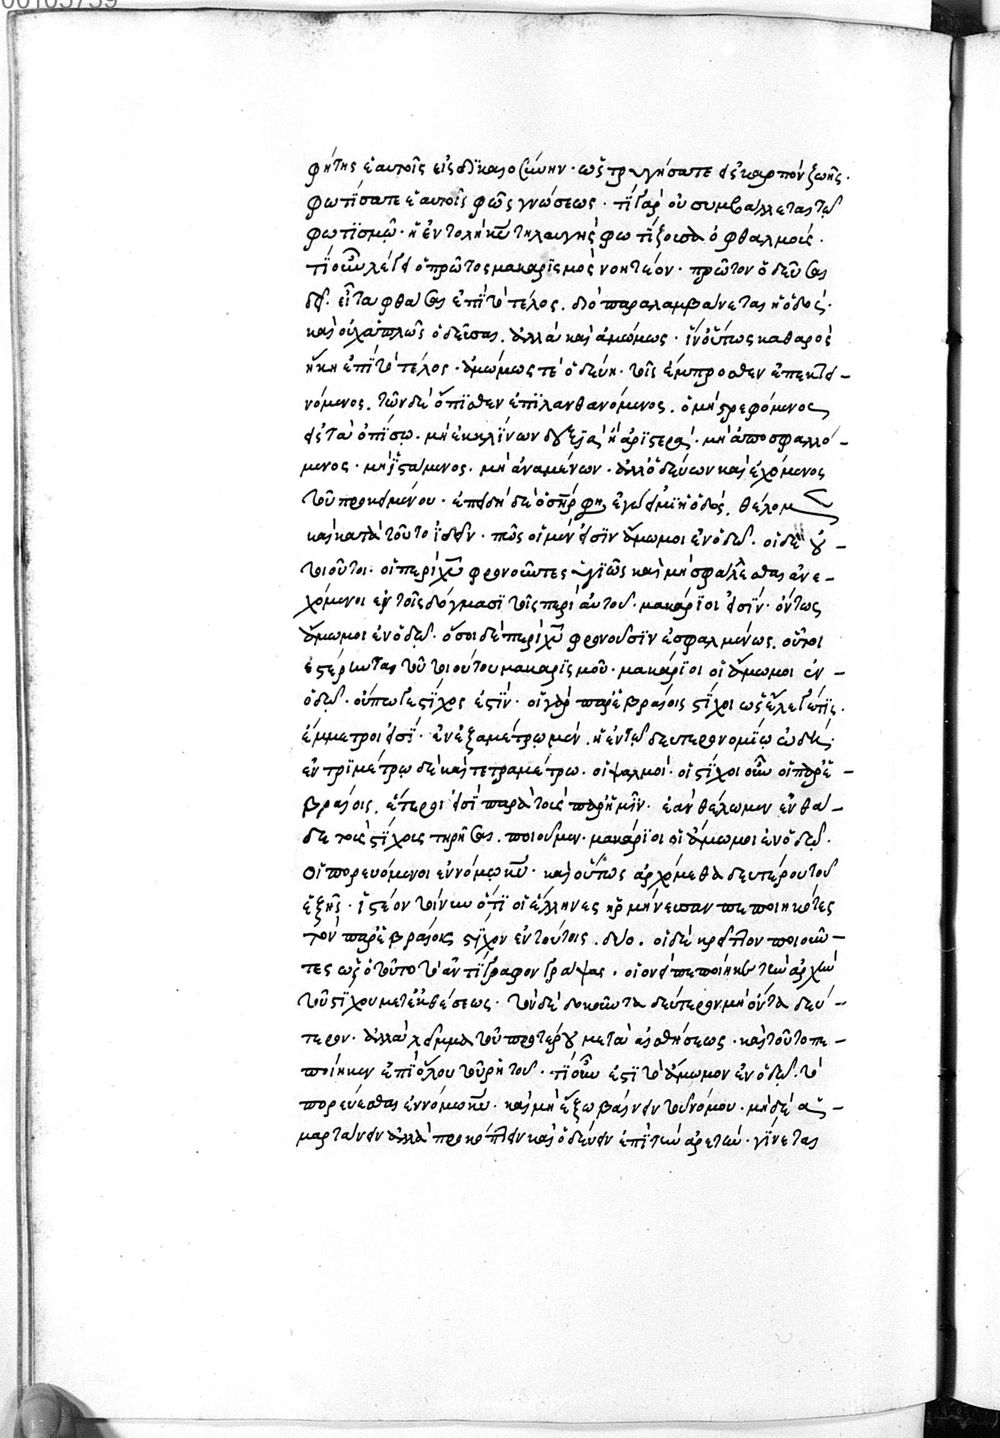 φήτης ἑαυτοῖς εἰς δικαιοσύνην· ὡς τρυγήσατε εἰς καρπὸν ζωῆς·
φωτίσατε ἑαυτοῖς φῶς γνώσεως· τί γὰρ οὐ συμβάλλεται τῷ
φωτισμῷ· ἡ ἐντολὴ κυ τηλαυγὴς φωτίζουσα ὀφθαλμούς·
τί οὖν λέγει ὁ πρῶτος μακαρισμὸς νοητέον· πρῶτον ὁδεῦσαι
δεῖ· εἶτα φθάσαι ἐπὶ τὸ τέλος. διὸ παραλαμβάνεται ἡ ὁδός·
καὶ οὐχ ἁπλῶς ὁδεῦσαι. ἀλλὰ καὶ ἀμώμως· ἵν' οὕτως καθαρὸς
ἥκῃ ἐπὶ τὸ τέλος· ἀμώμως τε ὁδεύῃ· τοῖς ἔμπροσθεν ἐπεκτει-
νόμενος. τῶν δὲ ὄπισθεν ἐπιλανθανόμενος. ὁ μὴ στρεφόμενος
εἰς τὰ ὀπίσω. μὴ ἐκκλίνων δεξιὰ ἢ ἀριστερά· μὴ ἀποσφαλλό-
μενος· μὴ ἱστάμενος. μὴ ἀναμένων· ἀλλ' ὁδεύων καὶ ἐχόμενος
τοῦ προκειμένου· ἐπειδὴ δὲ ὁ σηρ φη ἐγώ εἰμι ἡ ὁδός. θέλομεν
καὶ κατὰ τοῦτο ἰδεῖν· πῶς οἱ μέν εἰσιν ἄμωμοι ἐν ὁδῷ. οἱ δὲ οὐ
τοιοῦτοι· οἱ περὶ χυ φρονοῦντες ὑγιῶς καὶ μὴ σφάλλεσθαι ἀνε-
χόμενοι ἐν τοῖς δόγμασι τοῖς περὶ αὐτοῦ· μακάριοι εἰσὶν· ὄντως
ἄμωμοι ἐν ὁδῷ· ὅσοι δὲ περὶ χυ φρονοῦσιν ἐσφαλμένως. οὗτοι
ἐστέρηνται τοῦ τοιούτου μακαρισμοῦ· μακάριοι οἱ ἄμωμοι ἐν
ὁδῷ· οὔπω γε στίχος ἐστίν· οἱ γὰρ παρ' ἑβραίοις στίχοι ὡς ἔλεγέ τις.
ἔμμετροι εἰσὶ· ἐν ἑξαμέτρῳ μὲν. ἡ ἐν τῷ δευτερονομίῳ ᾠδή·
ἐν τριμέτρῳ δὲ καὶ τετραμέτρῳ. οἱ ψαλμοί· οἱ στίχοι οὖν οἱ παρ' ἑ-
βραίοις. ἕτεροι εἰσὶ παρὰ τοὺς παρ' ἡμῖν· ἐὰν θέλωμεν ἐνθά-
δε τοὺς στίχους τηρῆσαι. ποιοῦμεν· μακάριοι οἱ ἄμωμοι ἐν ὁδῷ.
οἱ πορευόμενοι ἐν νόμῳ κυ· καὶ οὕτως ἀρχόμεθα δευτέρου τοῦ
ἑξῆς· ἰστέον τοίνυν ὅτι οἱ ἕλληνες ἡρμήνευσαν πεποιηκότες
τὸν παρ' ἑβραίοις στίχον ἐν τούτοις. δύο. οἱ δὲ κρεῖττον ποιοῦν-
τες ὡς ὁ τοῦτο τὸ ἀντίγραφον γράψας. οἱονεὶ πεποίηκε τὴν ἀρχὴν
τοῦ στίχου μετ' ἐκθέσεως· τὸν δὲ δοκοῦντα δεύτερον μὴ ὄντα δεύ-
τερον· ἀλλὰ λεῖμμα τοῦ προτέρου μετὰ εἰσθήσεως· καὶ τοῦτο πε-
ποίηκεν ἐπὶ ὅλου τοῦ ῥητοῦ· τί οὖν ἐστὶ τὸ ἄμωμον ἐν ὁδῷ. τὸ
πορεύεσθαι ἐν νόμῳ κυ· καὶ μὴ ἔξω βαίνειν τοῦ νόμου· μηδὲ ἁ-
μαρτάνειν ἀλλὰ προκόπτειν καὶ ὁδεύειν ἐπὶ τὴν ἀρετήν· γίνεται